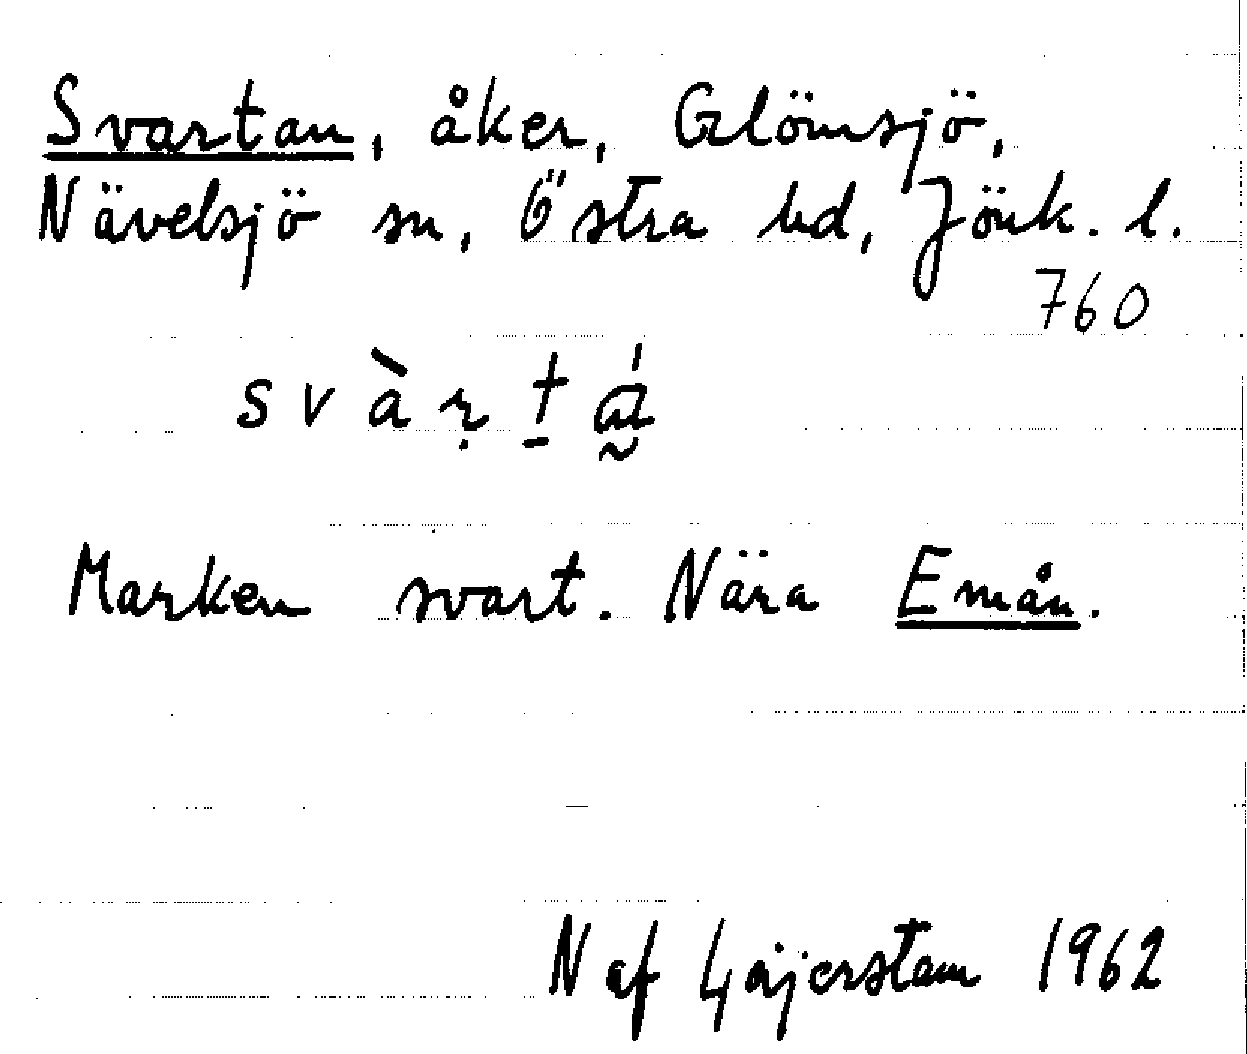 Svartan, åker, Glömsjö,
Nävelsjö sn, Östra hd, Jönk. l.
760
Marken svart. Nära Emån.
N af Geijerstam 1962